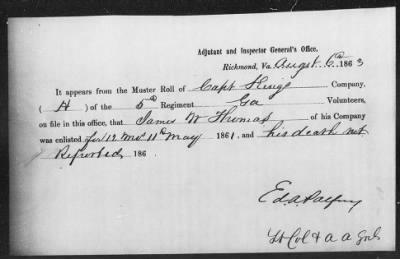 Adjutant and Inspector General's Office,
Richmond, Va. August 6th 1863
It appears from the Muster Roll of Capt Company,
( H ) of the 5th Regiment Ga Volunteers,
on file in this office, that James W Thomas of his Company
was enlisted for 12 mos 11th May 1861, and his death not
Reported, 186
Ed. A. Palfrey
Lt Col & A A Genl